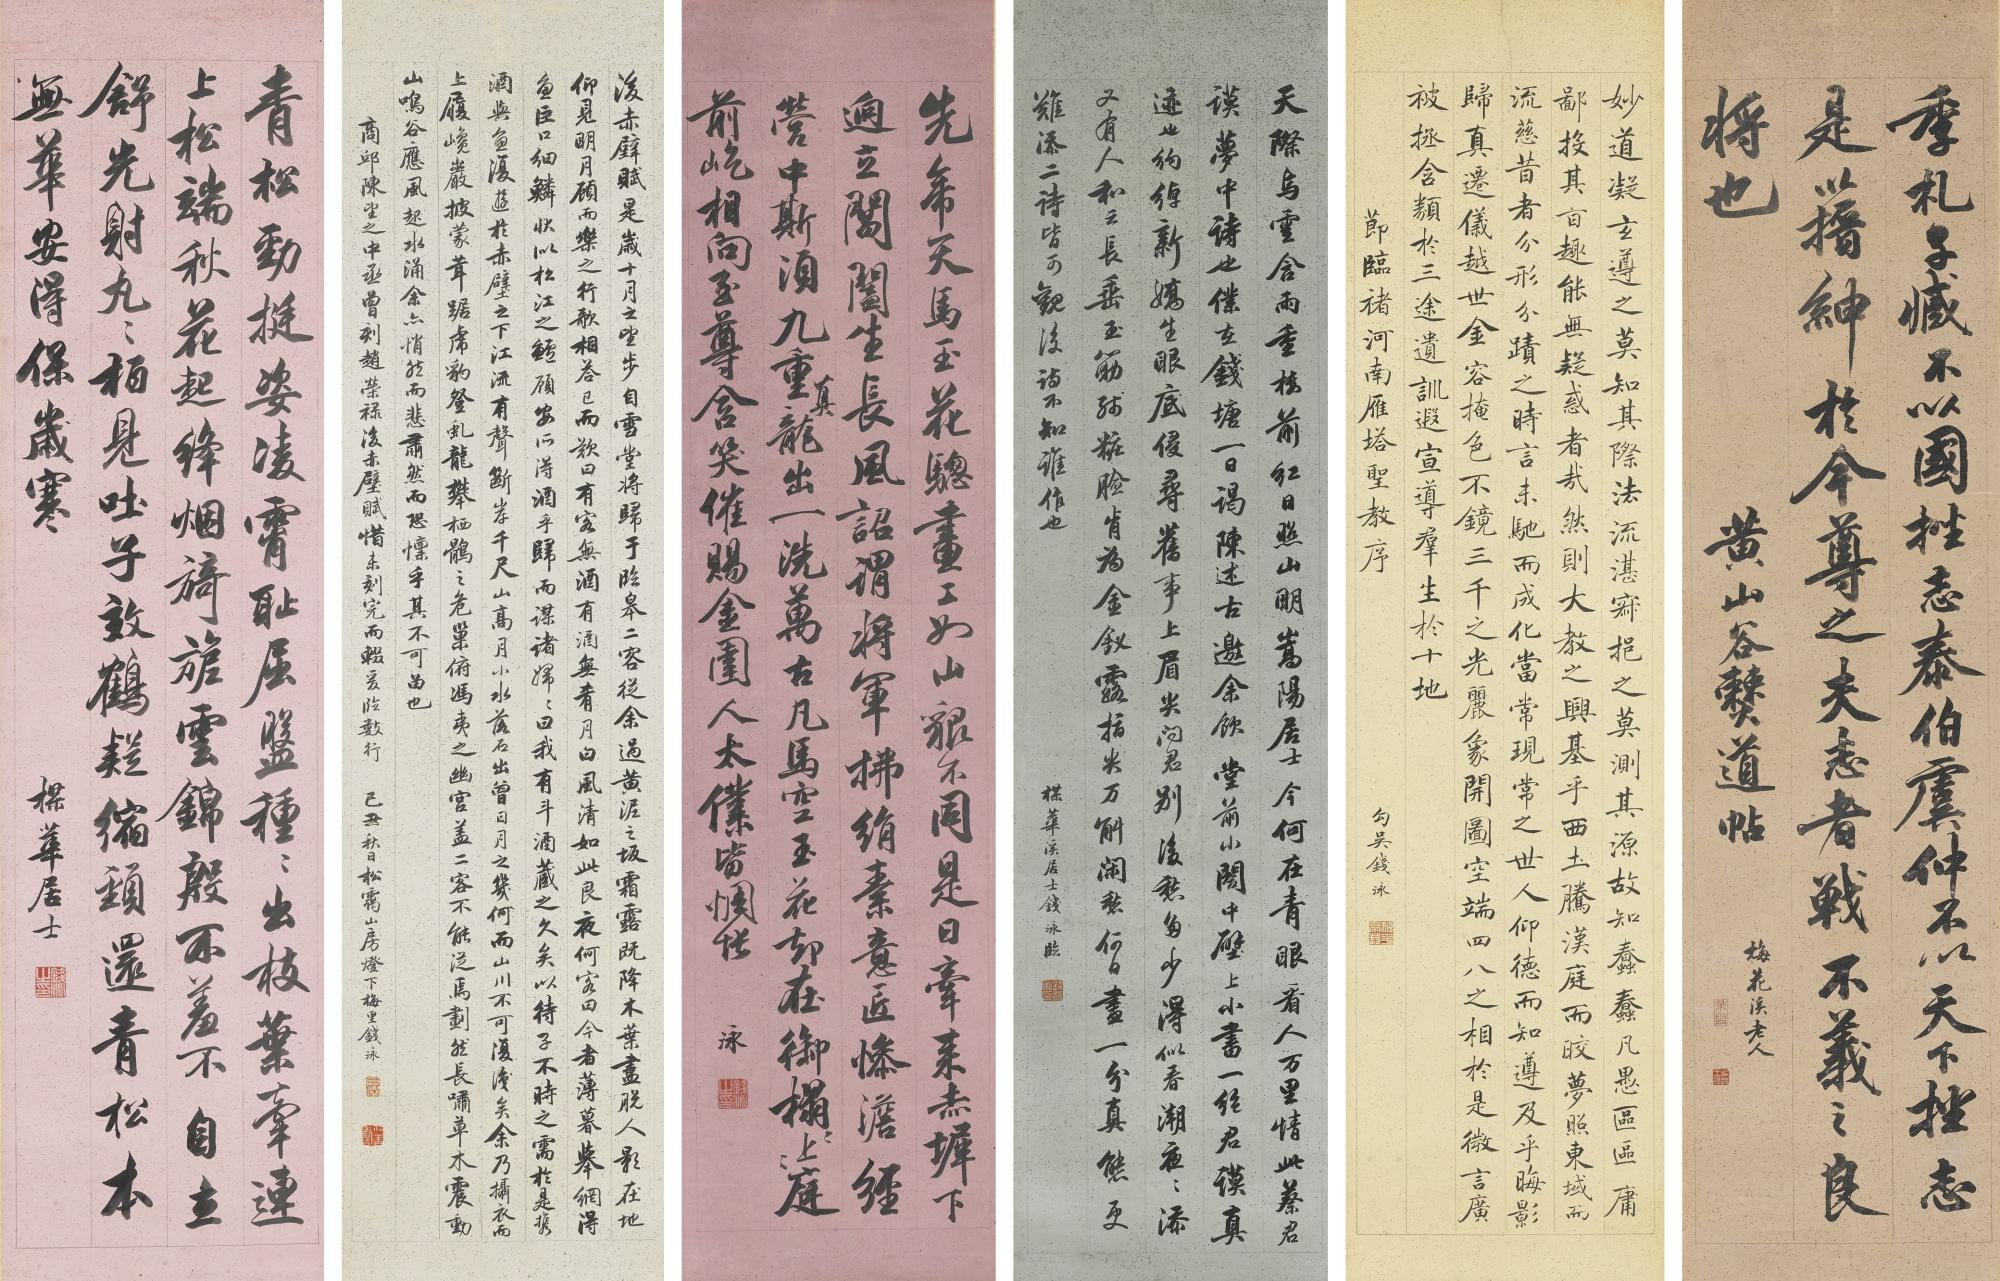 季札子臧不以國挫志泰伯虞仲不以天下挫志
是以搢紳於今尊之夫志者戰不義之良
将也
黄山谷贊道帖
梅花溪老人
妙道凝玄遵之莫知其際法流湛寂挹之莫測其源故知蠢蠢凡愚區區庸
鄙投其旨趣能無疑惑者哉然則大教之興基乎西土騰漢庭而皎夢照東域而
流慈昔者分形分蹟之時言未馳而成化當常現常之世人仰德而知遵及乎晦影
歸真遷儀越世金容掩色不鏡三千之光麗象開圖空端四八之相於是微言廣
被拯含類於三途遺訓遐宣導羣生於十地
節臨褚河南雁塔聖教序
勾吴錢泳
天際烏雲含雨重樓前紅日照山明嵩陽居士今何在青眼看人万里情此蔡君
謨夢中詩也僕在錢塘一日謁陳述古邀余飲堂前小閣中壁上小書一絕君謨真
迹也綽約新嬌生眼底侵尋舊事上眉尖问君别後愁多少得似春潮夜〻添
又有人和云長垂玉筯残粧臉肯為金釵露指尖万斛闲愁何日盡一分真態更
難添二詩皆可觀後詩不知誰作也
楳華溪居士錢泳臨
先帝天馬玉花驄畫工如山貌不同是日牽来赤墀下
逈立閶闔生長風詔謂将軍拂絹素意匠惨澹經
營中斯須九重真龍出一洗萬古凡馬空玉花却在御榻上榻上庭
前屹相向至尊含笑催賜金圉人太僕皆惆悵
泳
後赤壁賦是歲十月之望步自雪堂将歸于臨皋二客従余過黄泥之坂霜露既降木葉盡脱人影在地
仰見明月顧而樂之行歌相答已而歎曰有客無酒有酒無肴月白風清如此良夜何客曰今者薄暮舉網得
魚巨口細鱗状似松江之鱸顧安所得酒乎歸而謀諸婦〻曰我有斗酒蔵之久矣以待子不時之需於是攜
酒與魚復遊於赤壁之下江流有聲斷岸千尺山高月小水落石出曾日月之幾何而山川不可復識矣余乃攝衣而
上履巉巖披蒙茸踞虎豹登虬龍攀栖鶻之危巢俯馮夷之幽宮盖二客不能従焉劃然長嘯草木震動
山鳴谷應風起水涌余亦悄然而悲肅然而恐懍乎其不可留也
商邱陳望之中丞曾刻趙榮禄後赤壁賦惜未刻完而輟爰臨數行 己丑秋日松靄山房燈下梅里錢泳
青松勁挺姿凌霄耻屈盤種〻出枝葉牽連
上松端秋花起絳烟旖旎雲錦殷不羞不自立
舒光射丸〻柏見吐子效鶴疑縮頸還青松本
無華安得保歲寒
楳華居士